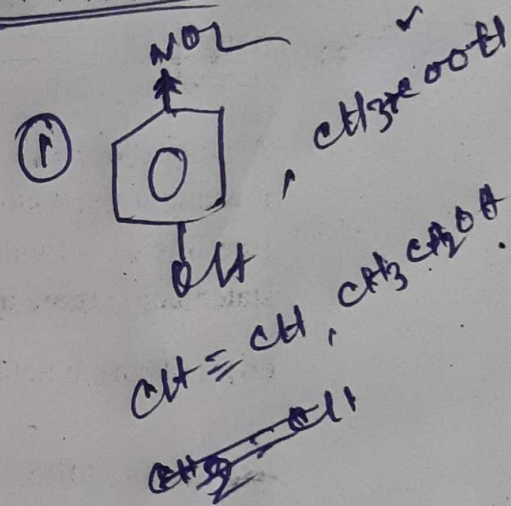 ① NO2
OH , CH3COOH
CH≡CH , CH3CH2OH .